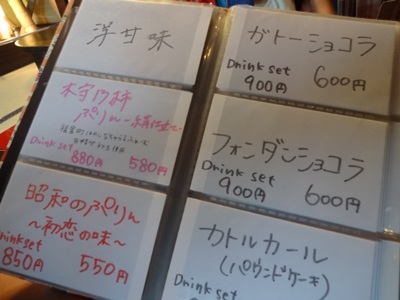 洋甘味
ぷりん
Drink set
880円 580円
昭和のぷりん
~初恋の味~
Drink set
850円 550円
ガトーショコラ
Drink set
900円 600円
フォンダンショコラ
Drink set
900円 600円
カトルカール
(パウンドケーキ)